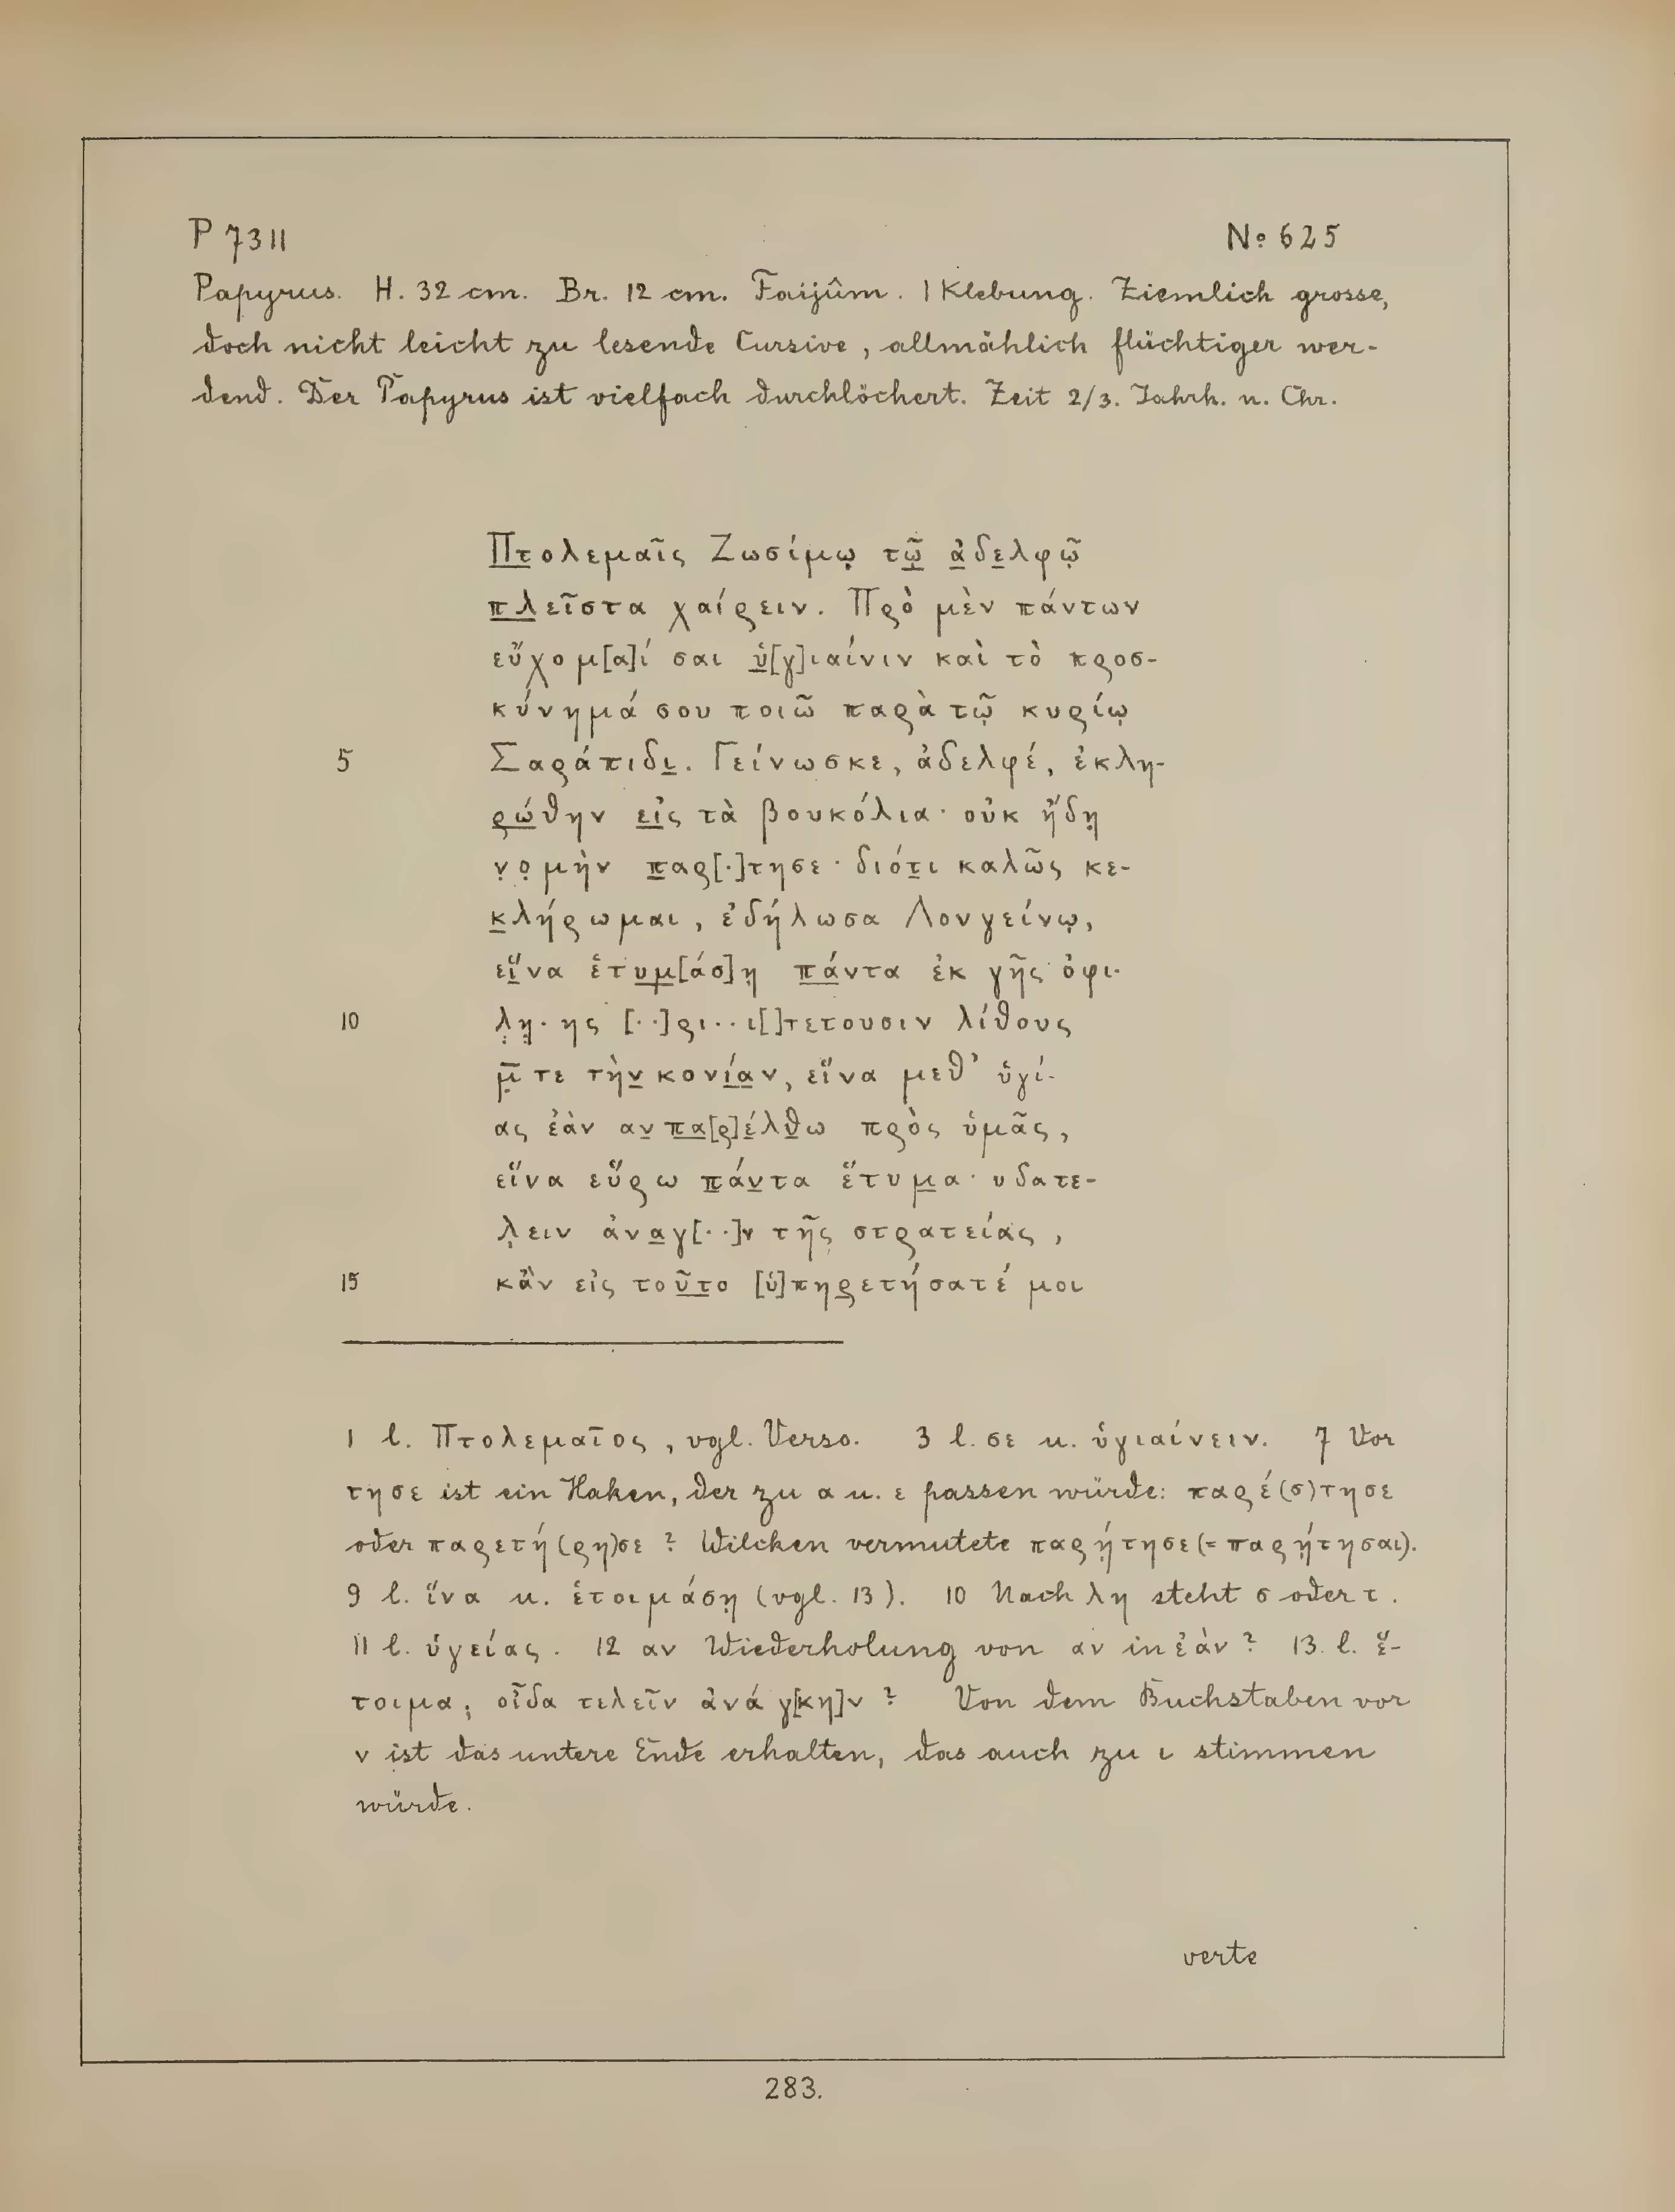 P 7311 № 625
Papyrus. H. 32 cm. Br. 12 cm. Faijûm. 1 Klebung. Ziemlich grosse,
doch nicht leicht zu lesende Cursive, allmählich flüchtiger wer-
dend. Der Papyrus ist vielfach durchlöchert. Zeit 2/3. Jahrh. n. Chr.
Π̲τ̲ολεμαῖς Ζωσίμῳ τῷ̲ ἀ̲δε̲λφῷ
π̲λ̲εῖστα χαίρειν. Πρὸ μὲν πάντων
εὔχομ[α]ί σαι ὑ̲[γ]ιαίνιν καὶ τὸ προσ-
κύνημά σου ποιῶ παρὰ τῷ κυρίῳ
5 Σαράπιδι̲. Γείνωσκε, ἀδελφέ, ἐκλη-
ρ̲ώ̲θην ε̲ἰ̲ς τὰ βουκόλια· οὐκ ἤδη̣
ν̣ο̣μὴν π̲αρ[·]τησε· διότ̲ι καλῶς κε-
κ̲λήρωμαι, ἐδήλωσα Λονγείνῳ,
εἵ̲να ἑτυ̲μ̲[άσ]ῃ π̲ά̲ντα ἐκ γῆς ὀφι-
10 λ̣η̣· ης [··]ρι··ι[]τετουσιν λίθους
μ̣̄ τε τὴν̲ κονί̲α̲ν, εἵνα μεθ’ ὑγί-
ας ἐὰν αν̲ π̲α̲[ρ]έ̲λθ̲ω πρὸς ὑμᾶς,
εἵνα εὕρω π̲άν̲τα ἕτυμ̲α· υδατε-
λ̣ειν ἀνα̲γ[··]ν τῆς στρατείας,
15 κἂν εἰς τοῦ̲τ̲ο [ὑ]πηρ̲ετήσατέ μοι
1 l. Πτολεμαῖος, vgl. Verso. 3 l. σε u. ὑγιαίνειν. 7 Vor
τησε ist ein Haken, der zu α u. ε passen würde: παρέ(σ)τησε
oder παρετή(ρη)σε? Wilcken vermutete παρῄτησε (= παρῄτησαι).
9 l. ἵνα u. ἑτοιμάσῃ (vgl. 13). 10 Nach λη steht σ oder τ.
11 l. ὑγείας. 12 αν Wiederholung von αν in ἐάν? 13. l. ἕ-
τοιμα; οἶδα τελεῖν ἀνάγ[κη]ν? Von dem Buchstaben vor
ν ist das untere Ende erhalten, das auch zu ι stimmen
würde.
verte
283.